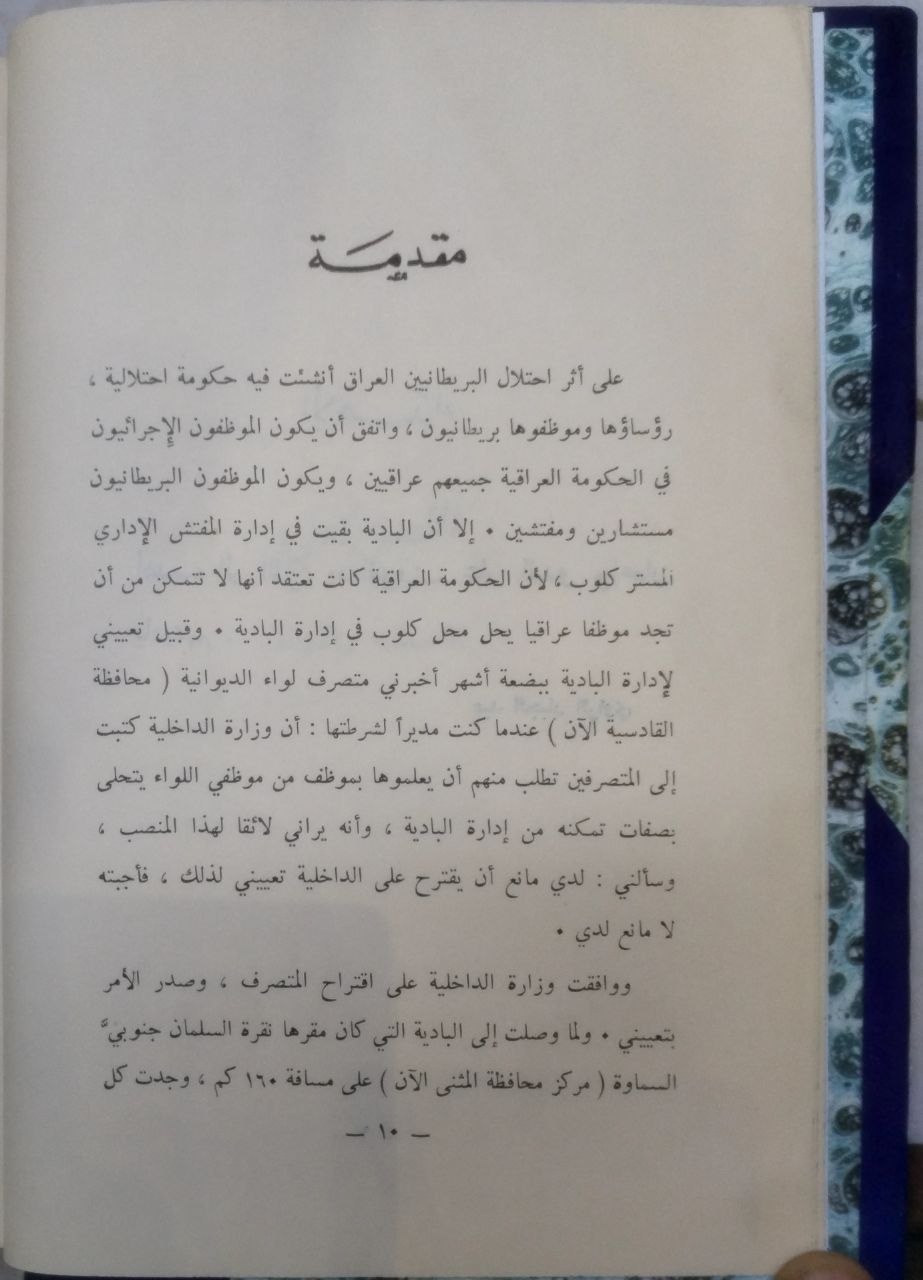 مقدمة
على أثر احتلال البريطانيين العراق أنشئت فيه حكومة احتلالية ،
رؤساؤها وموظفوها بريطانيون ، واتفق أن يكون الموظفون الإجرائيون
في الحكومة العراقية جميعهم عراقيين ، ويكون الموظفون البريطانيون
مستشارين ومفتشين . إلا أن البادية بقيت في إدارة المفتش الإداري
المستر كلوب ، لأن الحكومة العراقية كانت تعتقد أنها لا تتمكن من أن
تجد موظفا عراقيا يحل محل كلوب في إدارة البادية . وقبيل تعييني
لإدارة البادية ببضعة أشهر أخبرني متصرف لواء الديوانية ( محافظة
القادسية الآن ) عندما كنت مديراً لشرطتها : أن وزارة الداخلية كتبت
إلى المتصرفين تطلب منهم أن يعلموها بموظف من موظفي اللواء يتحلى
بصفات تمكنه من إدارة البادية ، وأنه يراني لائقا لهذا المنصب ،
وسألني : لدي مانع أن يقترح على الداخلية تعييني لذلك ، فأجبته
لا مانع لدي .
ووافقت وزارة الداخلية على اقتراح المتصرف ، وصدر الأمر
بتعييني . ولما وصلت إلى البادية التي كان مقرها نقرة السلمان جنوبيَّ
السماوة ( مركز محافظة المثنى الآن ) على مسافة ١٦٠ كم ، وجدت كل
— ١٠ —